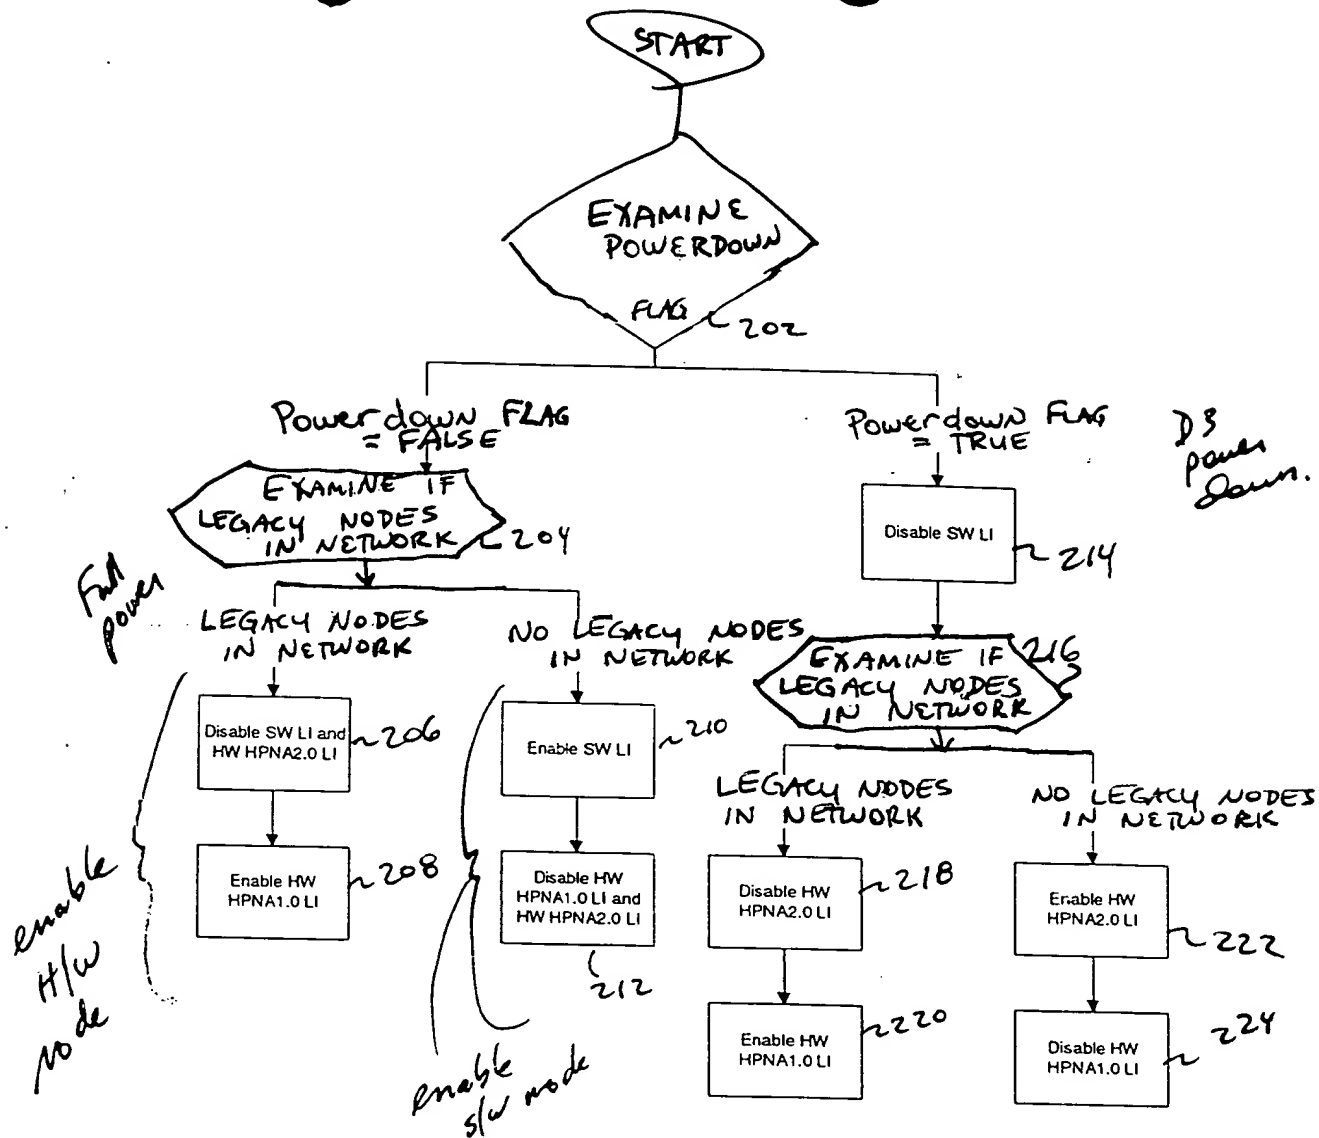 START
EXAMINE
POWERDOWN
FLAG
202
Powerdown FLAG
= FALSE
Powerdown FLAG
= TRUE
D3
power
down.
EXAMINE IF
LEGACY NODES
IN NETWORK
204
Disable SW LI
214
Full
power
LEGACY NODES
IN NETWORK
NO LEGACY NODES
IN NETWORK
EXAMINE IF
LEGACY NODES
IN NETWORK
216
Disable SW LI and
HW HPNA2.0 LI
206
Enable SW LI
210
LEGACY NODES
IN NETWORK
NO LEGACY NODES
IN NETWORK
Enable HW
HPNA1.0 LI
208
Disable HW
HPNA1.0 LI and
HW HPNA2.0 LI
212
Disable HW
HPNA2.0 LI
218
Enable HW
HPNA2.0 LI
222
enable
H/W
node
enable
s/w mode
Enable HW
HPNA1.0 LI
220
Disable HW
HPNA1.0 LI
224